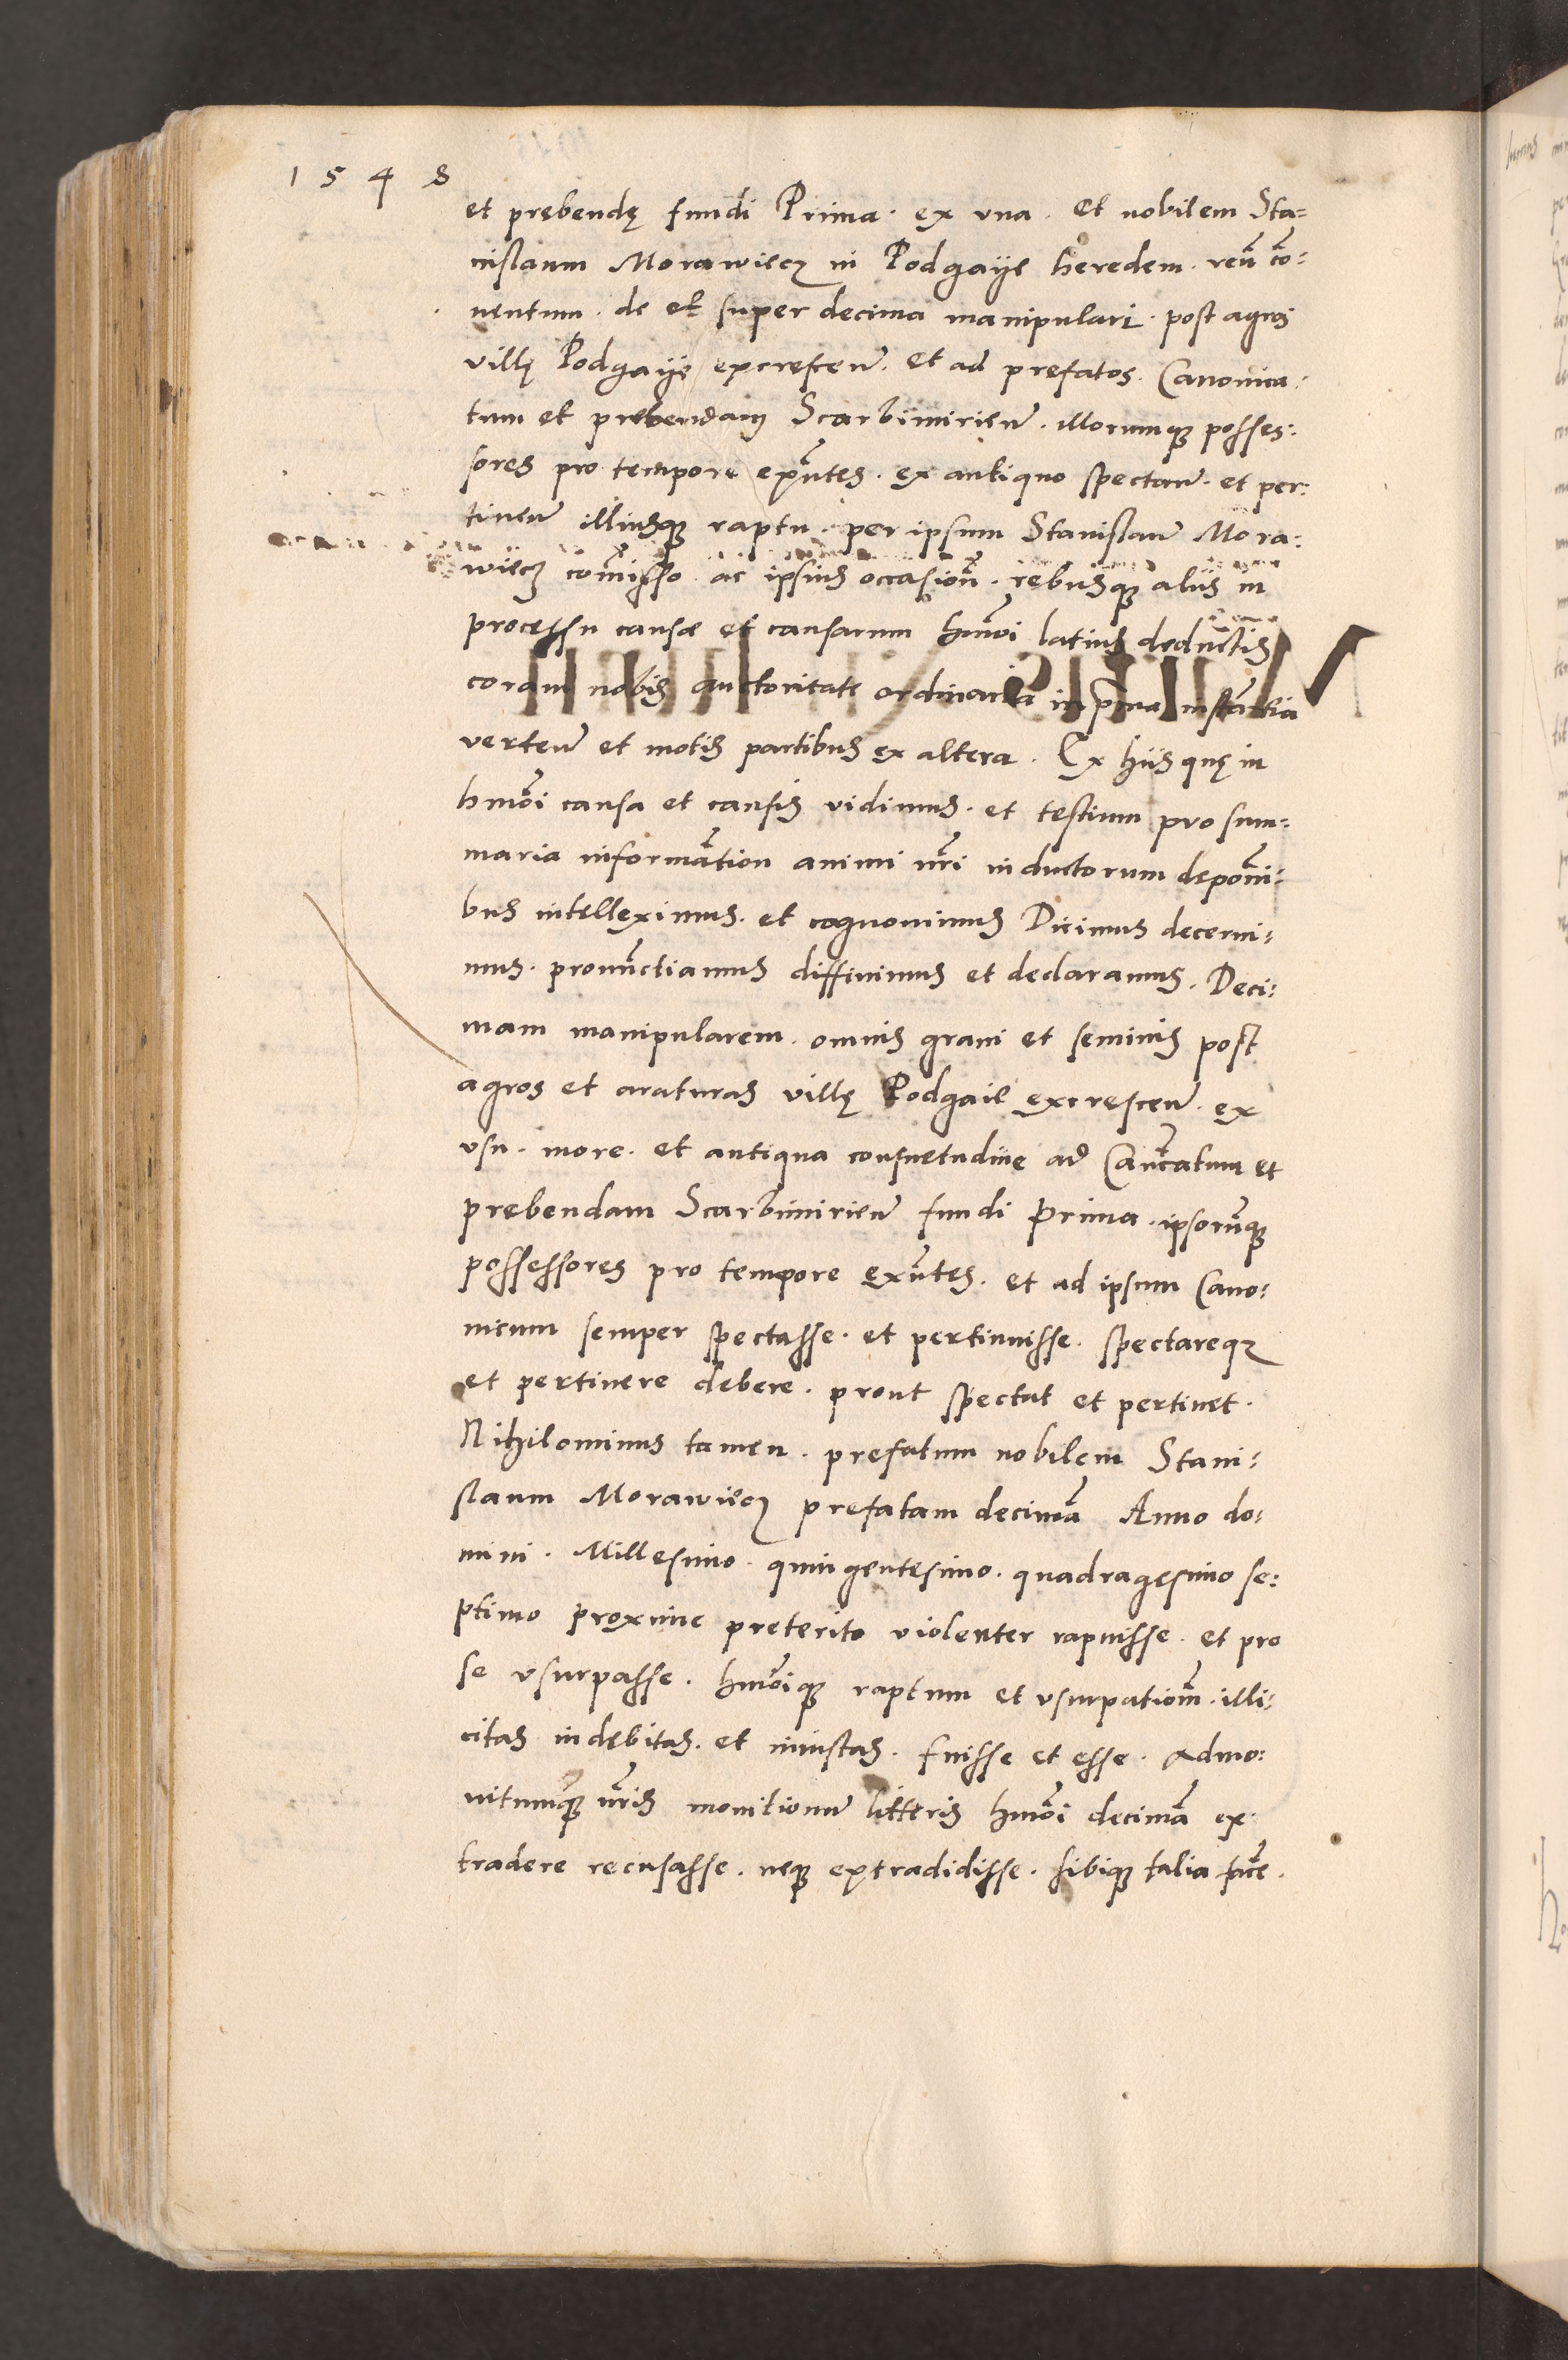 1548
et prebendę fundi Prima. ex vna. et nobilem Sta=
nislaum Morawiecz in Podgaÿe heredem. reũ cõ=
uentum. de et super decima manipulari. post agros
villę Podgaÿe excrescen̄. et ad prefatos. Canonica=
tum et prebendam Scarbimirien̄. illorumqꝫ posses=
sores pro tempore exñtes. ex antiquo spectan̄. et per=
tinen̄ illiusqꝫ raptu. per ipsum Stanislaum Mora=
wiecz com̃isso. ac ipsius occasion̄. rebusqꝫ alijs in
processu causæ et causarum hmõi latius deductis
coram nobis auctoritate ordinaria in p̃ma instãntia
verten̄ et motis partibus ex altera. Ex hijs quę in
hmõi causa et causis vidimus. et testium pro sum=
maria informãtion animi nr̃i inductorum deponĩ=
bus intelleximus. et cognouimus Dicimus decerni=
mus. pronũctiamus diffinimus et declaramus. Deci=
mam manipularem. omnis grani et seminis post
agros et araturas villę Podgaie excrescen̄. ex
vsu. more. et antiqua consuetudine ad Cañcatum et
prebendam Scarbimirien̄ fundi Prima. ipsorũqꝫ
possessores pro tempore exñtes. et ad ipsum Cano=
nicum semper spectasse. et pertinuisse. spectareqꝫ
et pertinere debere. prout spectat et pertinet.
Nihilominus tamen. prefatum nobilem Stani=
slaum Morawiecz prefatam decimã Anno do=
mini. Millesimo. quingentesimo. quadragesimo se=
ptimo proxime preterito violenter rapuisse. et pro
se vsurpasse. hmõiqꝫ raptum et vsurpationẽ. illi=
citas indębitas. et iniustas. fuisse et esse. Admo=
nitumqꝫ nr̃is monitionum litteris hmõi decimã ex
tradere recusasse. neqꝫ extradidisse. sibiqꝫ talia